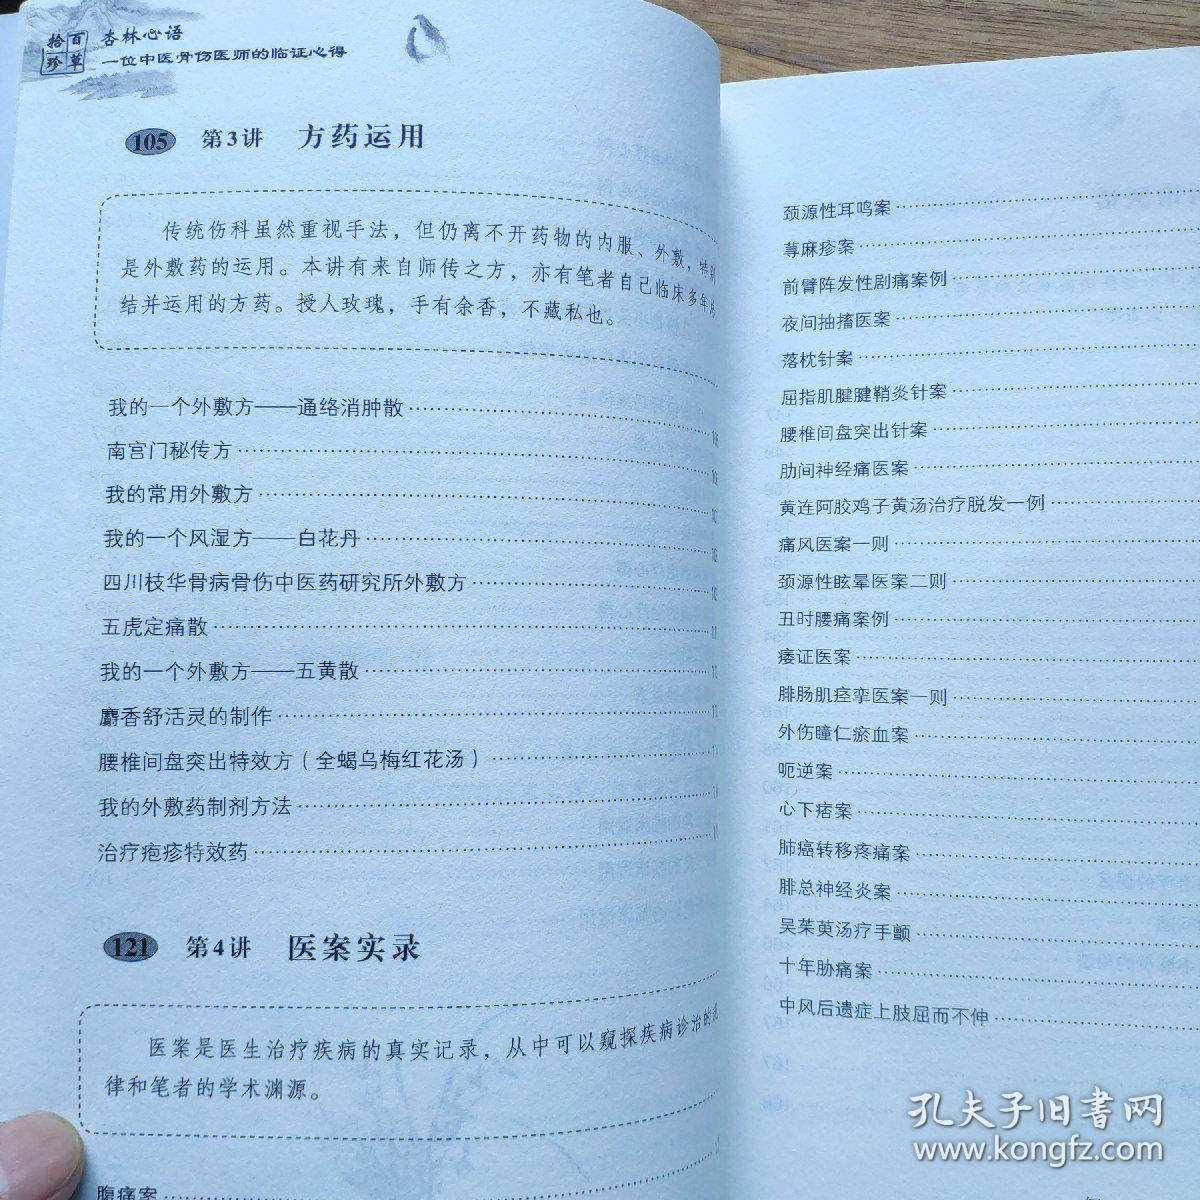 百草拾珍
杏林心语
一位中医骨伤医师的临证心得
105 第3讲 方药运用
传统伤科虽然重视手法，但仍离不开药物的内服、外敷，特别
是外敷药的运用。本讲有来自师传之方，亦有笔者自己临床多年
结并运用的方药。授人玫瑰，手有余香，不藏私也。
我的一个外敷方——通络消肿散
南宫门秘传方
我的常用外敷方
我的一个风湿方——白花丹
四川枝华骨病骨伤中医药研究所外敷方
五虎定痛散
我的一个外敷方——五黄散
麝香舒活灵的制作
腰椎间盘突出特效方（全蝎乌梅红花汤）
我的外敷药制剂方法
治疗疱疹特效药
121 第4讲 医案实录
医案是医生治疗疾病的真实记录，从中可以窥探疾病诊治的规
律和笔者的学术渊源。
腹痛案
颈源性耳鸣案
荨麻疹案
前臂阵发性剧痛案例
夜间抽搐医案
落枕针案
屈指肌腱腱鞘炎针案
腰椎间盘突出针案
肋间神经痛医案
黄连阿胶鸡子黄汤治疗脱发一例
痛风医案一则
颈源性眩晕医案二则
丑时腰痛案例
痿证医案
腓肠肌痉挛医案一则
外伤瞳仁瘀血案
呃逆案
心下痞案
肺癌转移疼痛案
腓总神经炎案
吴茱萸汤疗手颤
十年胁痛案
中风后遗症上肢屈而不伸
孔夫子旧书网
www.kongfz.com